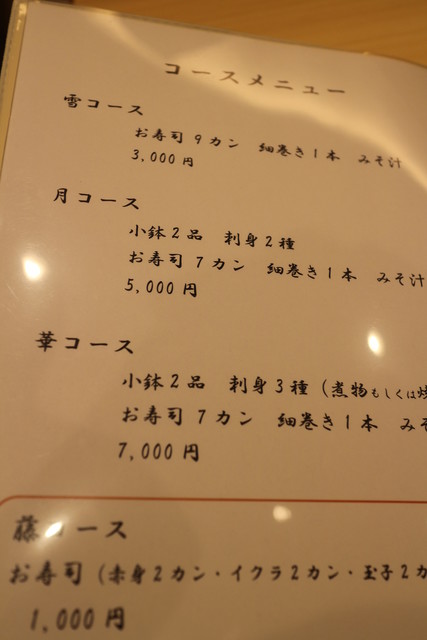 コースメニュー
雪コース
お寿司9カン 細巻き1本 みそ汁
3,000円
月コース
小鉢2品 刺身2種
お寿司7カン 細巻き1本 みそ汁
5,000円
華コース
小鉢2品 刺身3種(煮物もしくは焼
お寿司7カン 細巻き1本 みそ
7,000円
藤コース
お寿司(赤身2カン・イクラ2カン・玉子2カ
1,000円